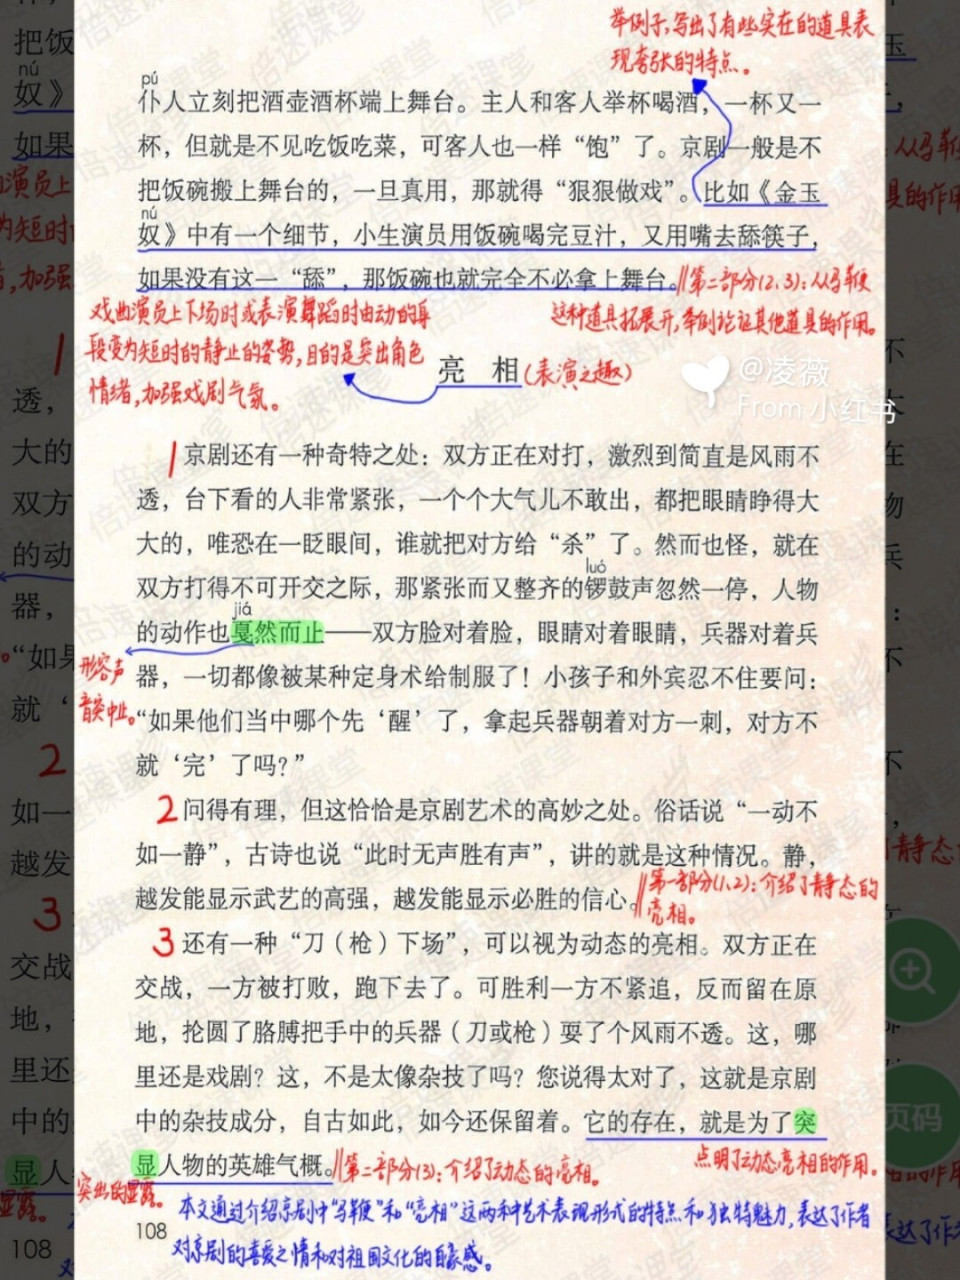 举例子,写出了有些实在的道具表
现夸张的特点。
pú
仆人立刻把酒壶酒杯端上舞台。主人和客人举杯喝酒，一杯又一
杯，但就是不见吃饭吃菜，可客人也一样“饱”了。京剧一般是不
把饭碗搬上舞台的，一旦真用，那就得“狠狠做戏”。比如《金玉
nú
奴》中有一个细节，小生演员用饭碗喝完豆汁，又用嘴去舔筷子，
如果没有这一“舔”，那饭碗也就完全不必拿上舞台。
第二部分(2、3):从马鞭
这种道具拓展开,举例论证其他道具的作用。
戏曲演员上下场时或表演舞蹈时由动的身
段变为短时的静止的姿势,目的是突出角色
情绪,加强戏剧气氛。
亮 相(表演之趣)
@凌薇
From 小红书
1 京剧还有一种奇特之处：双方正在对打，激烈到简直是风雨不
透，台下看的人非常紧张，一个个大气儿不敢出，都把眼睛睁得大
大的，唯恐在一眨眼间，谁就把对方给“杀”了。然而也怪，就在
luó
双方打得不可开交之际，那紧张而又整齐的锣鼓声忽然一停，人物
jiá
的动作也戛然而止——双方脸对着脸，眼睛对着眼睛，兵器对着兵
形容声
音突中止。
器，一切都像被某种定身术给制服了！小孩子和外宾忍不住要问：
“如果他们当中哪个先‘醒’了，拿起兵器朝着对方一刺，对方不
就‘完’了吗？”
2 问得有理，但这恰恰是京剧艺术的高妙之处。俗话说“一动不
如一静”，古诗也说“此时无声胜有声”，讲的就是这种情况。静，
越发能显示武艺的高强，越发能显示必胜的信心。
第一部分(1、2):介绍了静态的
亮相。
3 还有一种“刀（枪）下场”，可以视为动态的亮相。双方正在
交战，一方被打败，跑下去了。可胜利一方不紧追，反而留在原
地，抡圆了胳膊把手中的兵器（刀或枪）耍了个风雨不透。这，哪
里还是戏剧？这，不是太像杂技了吗？您说得太对了，这就是京剧
中的杂技成分，自古如此，如今还保留着。它的存在，就是为了突
显人物的英雄气概。
第二部分(3):介绍了动态的亮相。
点明了动态亮相的作用。
突出的显露。
108
本文通过介绍京剧中“马鞭”和“亮相”这两种艺术表现形式的特点和独特魅力,表达了作者
对京剧的喜爱之情和对祖国文化的自豪感。
页码